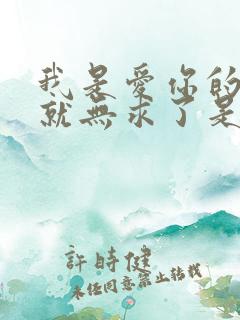 我是愛你的
就無求了是
許時健
未經同意禁止轉載